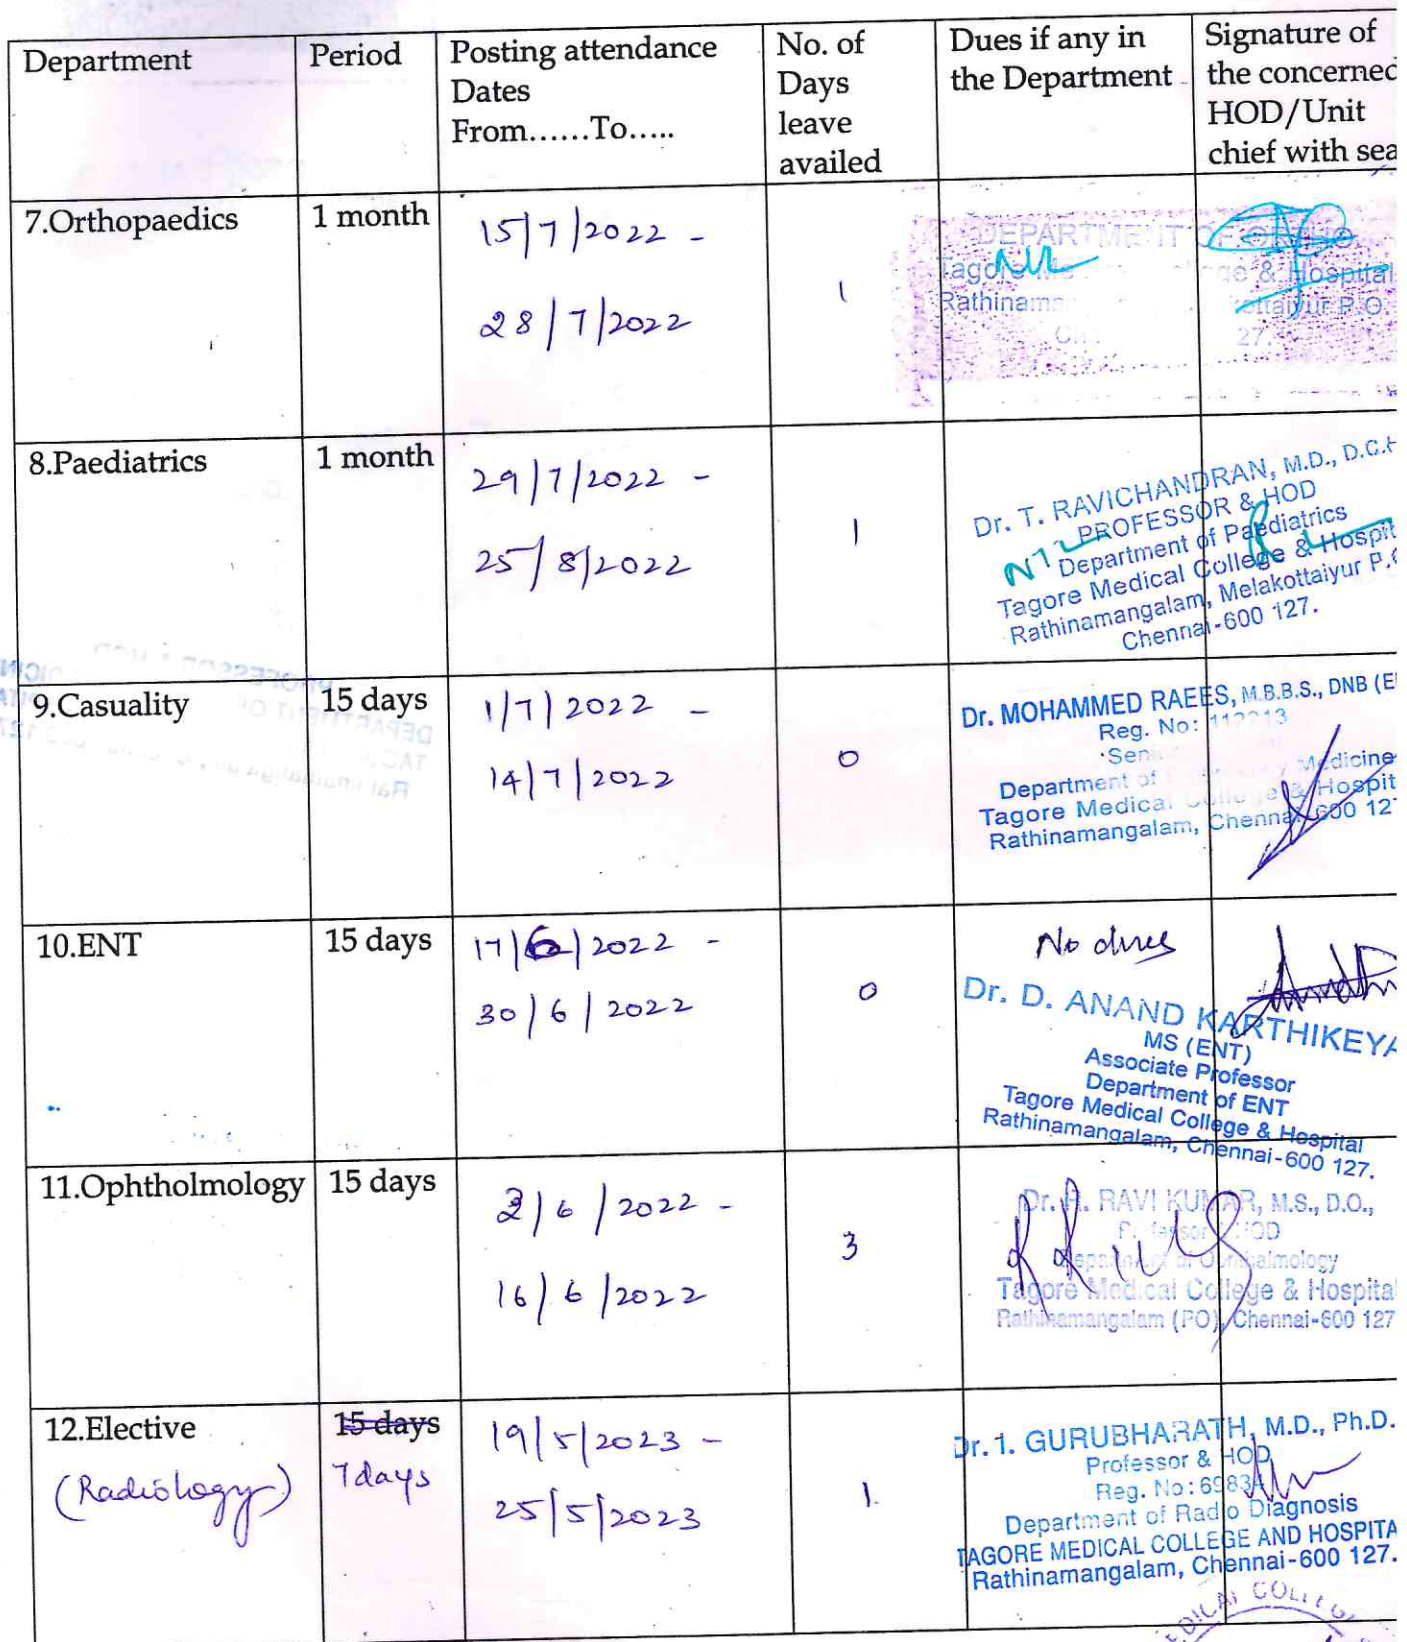 Department Period Posting attendance Dates From......To..... No. of Days leave availed Dues if any in the Department Signature of the concerned HOD/Unit chief with sea
7.Orthopaedics 1 month 15/7/2022 -
28/7/2022
1
Nil
DEPARTMENT OF ORTHO
Tagore & Hospital
P.O.
27.
8.Paediatrics 1 month 29/7/2022 -
25/8/2022
1
Nil
Dr. T. RAVICHANDRAN, M.D., D.C.H
PROFESSOR & HOD
Department of Paediatrics
Tagore Medical College & Hospit
Rathinamangalam, Melakottaiyur P.O
Chennai-600 127.
9.Casuality 15 days 1/7/2022 -
14/7/2022
0
Dr. MOHAMMED RAEES, M.B.B.S., DNB (E
Reg. No: 112213
Department of Medicine
Tagore Medical College & Hospit
Rathinamangalam, Chennai-600 127
10.ENT 15 days 17/6/2022 -
30/6/2022
0
No dues
Dr. D. ANAND KARTHIKEYA
MS (ENT)
Associate Professor
Department of ENT
Tagore Medical College & Hospital
Rathinamangalam, Chennai-600 127.
11.Ophtholmology 15 days 3/6/2022 -
16/6/2022
3
RAVI KUMAR, M.S., D.O.,
Professor HOD
Department of Ophthalmology
Tagore Medical College & Hospital
Rathinamangalam (PO), Chennai-600 127
12.Elective 15 days 19/5/2023 -
(Radiology) 7 days
25/5/2023
1.
Dr. 1. GURUBHARATH, M.D., Ph.D.
Professor & HOD
Reg. No: 69834
Department of Radio Diagnosis
TAGORE MEDICAL COLLEGE AND HOSPITA
Rathinamangalam, Chennai-600 127.